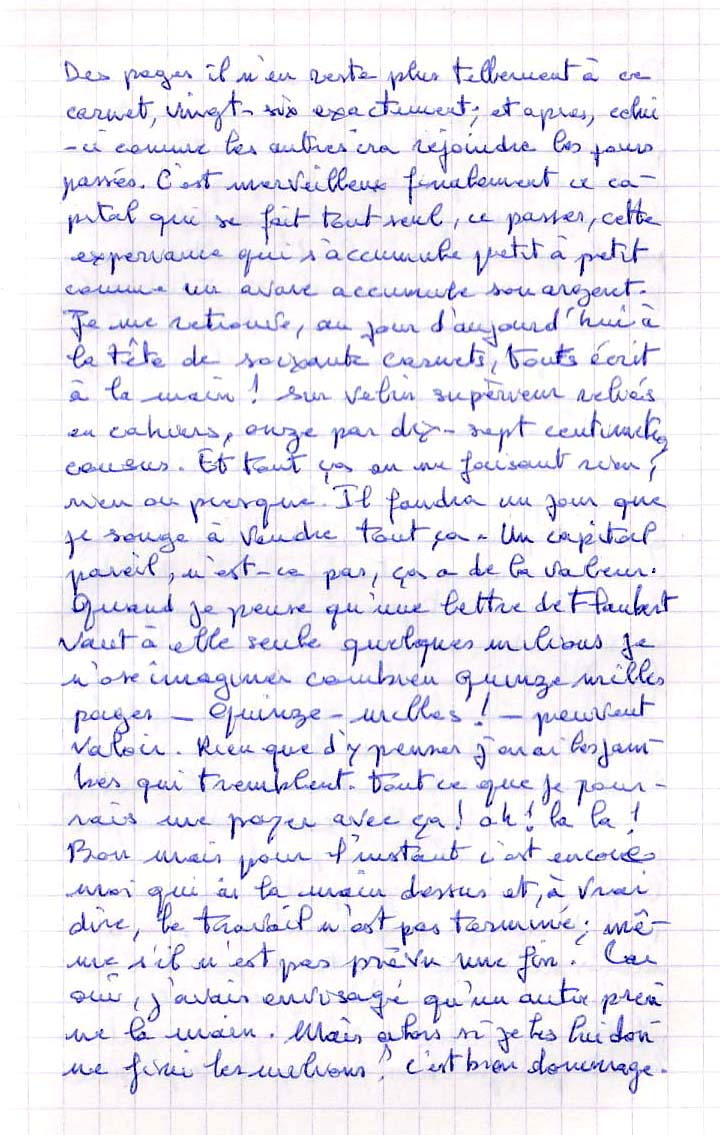 Des pages il n'en reste plus tellement à ce
carnet, vingt-six exactement; et apres, celui
-ci comme les autres ira rejoindre les jours
passés. C'est merveilleux finalement ce ca-
pital qui se fait tout seul, ce passer, cette
experiance qui s'accumule petit à petit
comme un avare accumule son argent.
Je me retrouve, au jour d'aujourd'hui à
la tête de soixante carnets, touts écrit
à la main ! sur velin supérieur reliés
en cahiers, onze par dix-sept centimètres
cousus. Et tout ça en ne faisant rien,
rien ou presque. Il faudra un jour que
je songe à vendre tout ça. Un capital
pareil, n'est-ce pas, ça a de la valeur.
Quand je pense qu'une lettre de Flaubert
vaut à elle seule quelques milions je
n'ose imaginer combien quinze milles
pages - Quinze-milles ! - peuvent
valoir. Rien que d'y penser j'en ai les jam-
bes qui tremblent. tout ce que je pour-
rais me payer avec ça ! ah ! la la !
Bon mais pour l'instant c'est encore
moi qui ai la main dessus et, à vrai
dire, le travail n'est pas terminé; mê-
me s'il n'est pas prévu une fin. Car
oui, j'avais envisagé qu'un autre pren
ne la main. Mais alors si je les lui don
ne fini les milions ! c'est bien dommage.